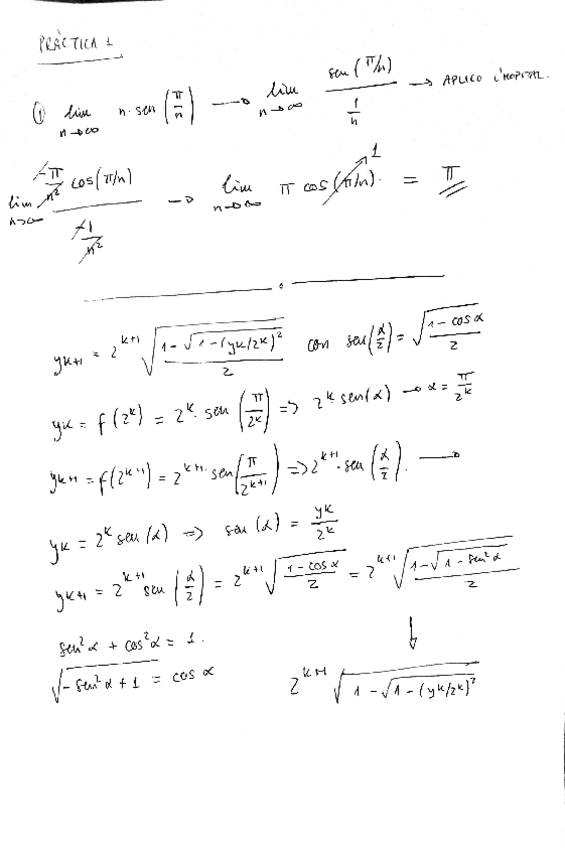 PRÁCTICA 1
① lim n→∞ n·sen(π/n) → lim n→∞ sen(π/n) / (1/n) → APLICO L'HOPITAL.
lim n→∞ (-π/n² cos(π/n)) / (-1/n²) → lim n→∞ π cos(π/n) 1 = π
yk+1 = 2^(k+1) √((1-√(1-(yk/2^k)²))/2) con sen(α/2) = √((1-cos α)/2)
yk = f(2^k) = 2^k · sen(π/2^k) => 2^k sen(α) → α = π/2^k
yk+1 = f(2^(k+1)) = 2^(k+1) · sen(π/2^(k+1)) => 2^(k+1) · sen(α/2). →
yk = 2^k sen(α) => sen(α) = yk/2^k
yk+1 = 2^(k+1) sen(α/2) = 2^(k+1) √((1-cos α)/2) = 2^(k+1) √((1-√(1-sen²α))/2)
sen²α + cos²α = 1.
↓
√(-sen²α + 1) = cos α
2^(k+1) √(1-√(1-(yk/2^k)²))